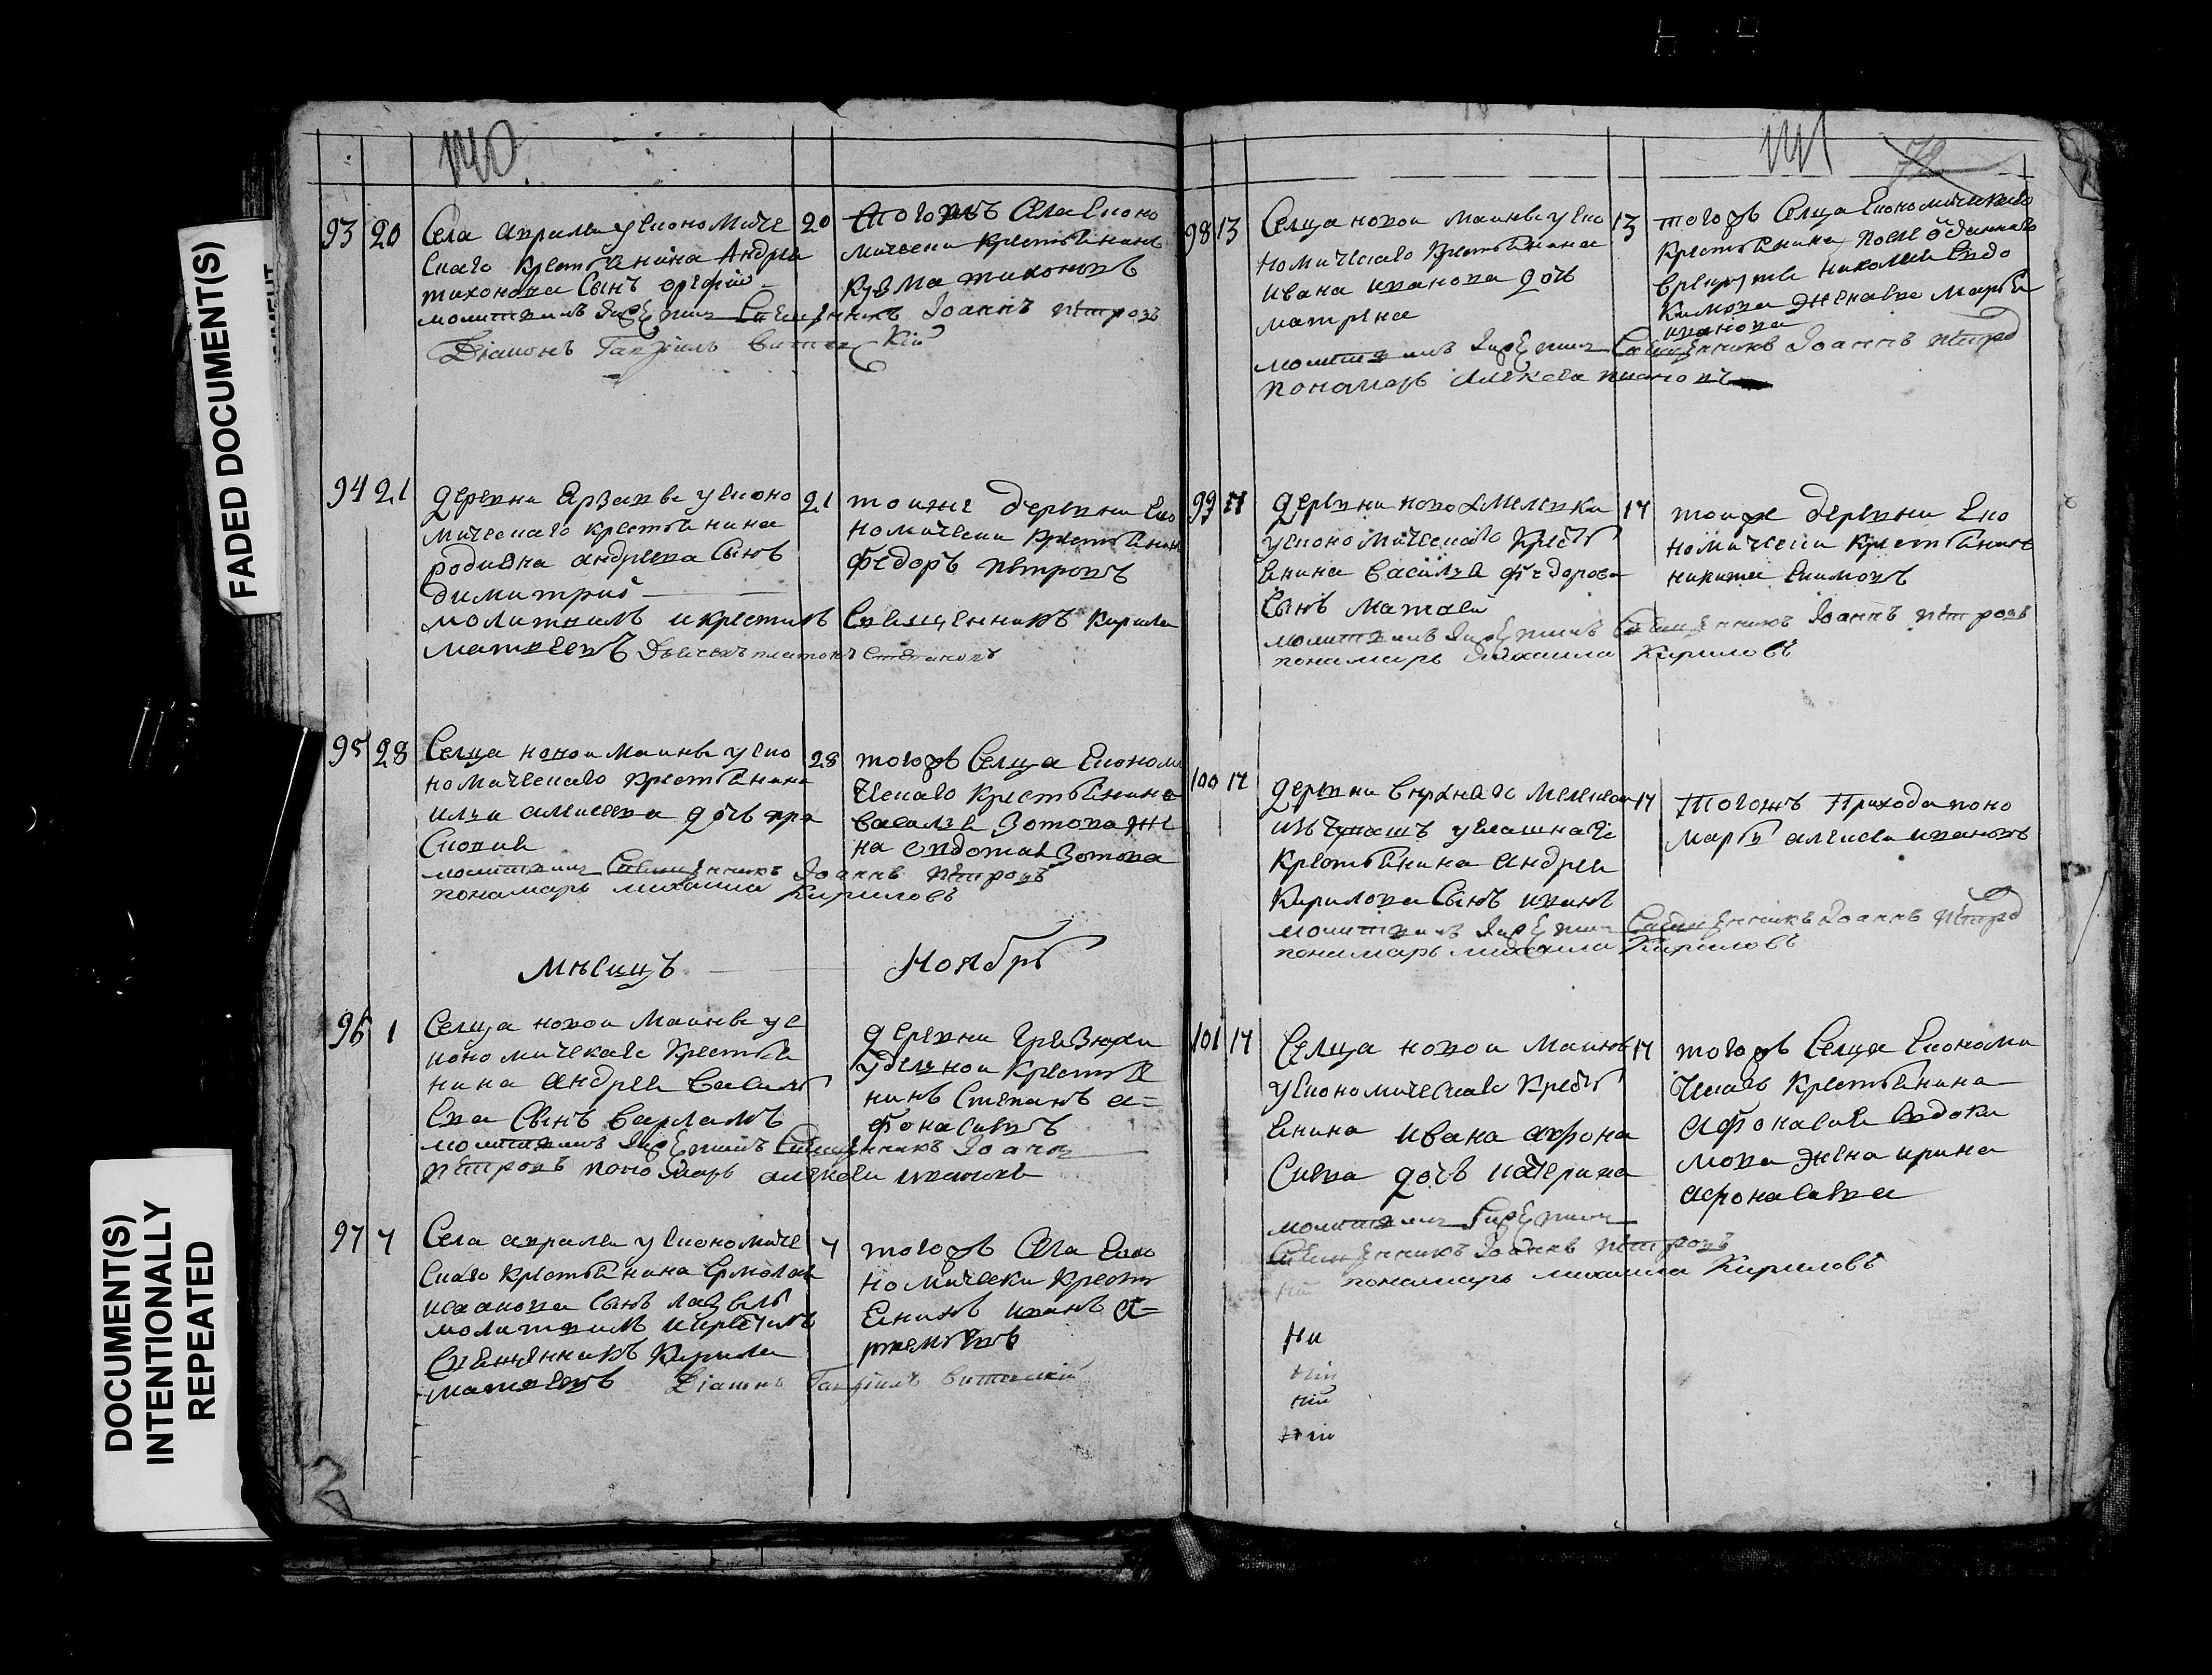 FADED DOCUMENT(S)
DOCUMENT(S)
INTENTIONALLY
REPEATED
140
93 20 Села акрамы у Економиче
скаго крестьянина Андрея
тихонова Сынъ
молитвилъ и крестилъ Священникъ Іоаннъ петровъ
Діаконъ Гавріилъ
20 тогожъ Села Еконо
мически крестьянинъ
Кузма тихоновъ
94 21 деревни у Еконо
мическаго крестьянина
родиона андреева Сынъ
димитрий
молитвилъ и крестилъ Священникъ Кирила
матвеевъ Дьячекъ платонъ Степановъ
21 тоиже деревни Еко
номически крестьянин
федоръ петровъ
95 28 Селца новои маины у Еко
номическаго крестьянина
ильи алексеева дочь пра
сковия
молитвилъ Священникъ Іоаннъ петровъ
пономарь михаила Кириловъ
28 тогожъ Селца Економи
ческаго крестьянина
василья Зотова же
на Зотова
Мѣсицъ Ноябрь
96 1 Селца новои маины у Е
кономическаго крестья
нина андрея василь
ева Сынъ варламъ
молитвилъ и крестилъ Священникъ Іоаннъ
петровъ пономарь алексеи ивановъ
деревни грязнухи
удельнои крестья
нинъ Степанъ а=
фонасьевъ
97 4 Села у Економиче
скаго крестьянина Ермолая
Сынъ
молитвилъ и крестилъ
Священникъ Кирила
матвеевъ Діаконъ Гавріилъ
4 тогожъ Села Еко
номически крестъ
янинъ иванъ а=
ртемьевъ
141
98 13 Селца новои маины у Еко
номическаго крестьянина
ивана иванова дочь
матрена
молитвилъ и крестилъ Священникъ Іоаннъ петровъ
пономарь алексеи ивановъ
13 тогожъ Селца Економическаго
крестьянина
николаи Евдо
кимова жена ево марья
иванова
99 деревни
у Економическаго крестъ
янина василья федорова
Сынъ матвеи
молитвилъ и крестилъ Священникъ Іоаннъ петровъ
пономарь михаила Кириловъ
14 тоиже деревни Еко
номически крестьянинъ
никита Екимовъ
100 14 деревни
изъ чувашъ у ясашнаго
крестьянина андрея
Кирилова Сынъ иванъ
молитвилъ и крестилъ Священникъ Іоаннъ петровъ
пономарь михаила Кириловъ
14 тогожъ прихода поно
марь алексеи ивановъ
101 14 Селца новои маины
у Економическаго кресть
янина ивана афона
сиева дочь катерина
молитвилъ и крестилъ
Священникъ Іоаннъ петровъ
пономарь михаила Кириловъ
14 тогожъ Селца Економи
ческаго крестьянина
афонасия Евдоки
мова жена ирина
афонасьева
ни
ний
ний